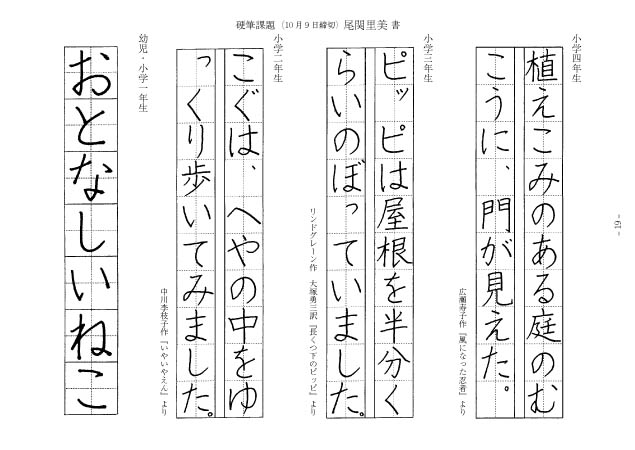 硬筆課題（10月9日締切）尾関里美 書
小学四年生
植えこみのある庭のむ
こうに、門が見えた。
広瀬寿子作『風になった忍者』より
小学三年生
ピッピは屋根を半分く
らいのぼっていました。
リンドグレーン作　大塚勇三訳『長くつ下のピッピ』より
小学二年生
こぐは、へやの中をゆ
っくり歩いてみました。
中川李枝子作『いやいやえん』より
幼児・小学一年生
おとなしいねこ
- 19 -